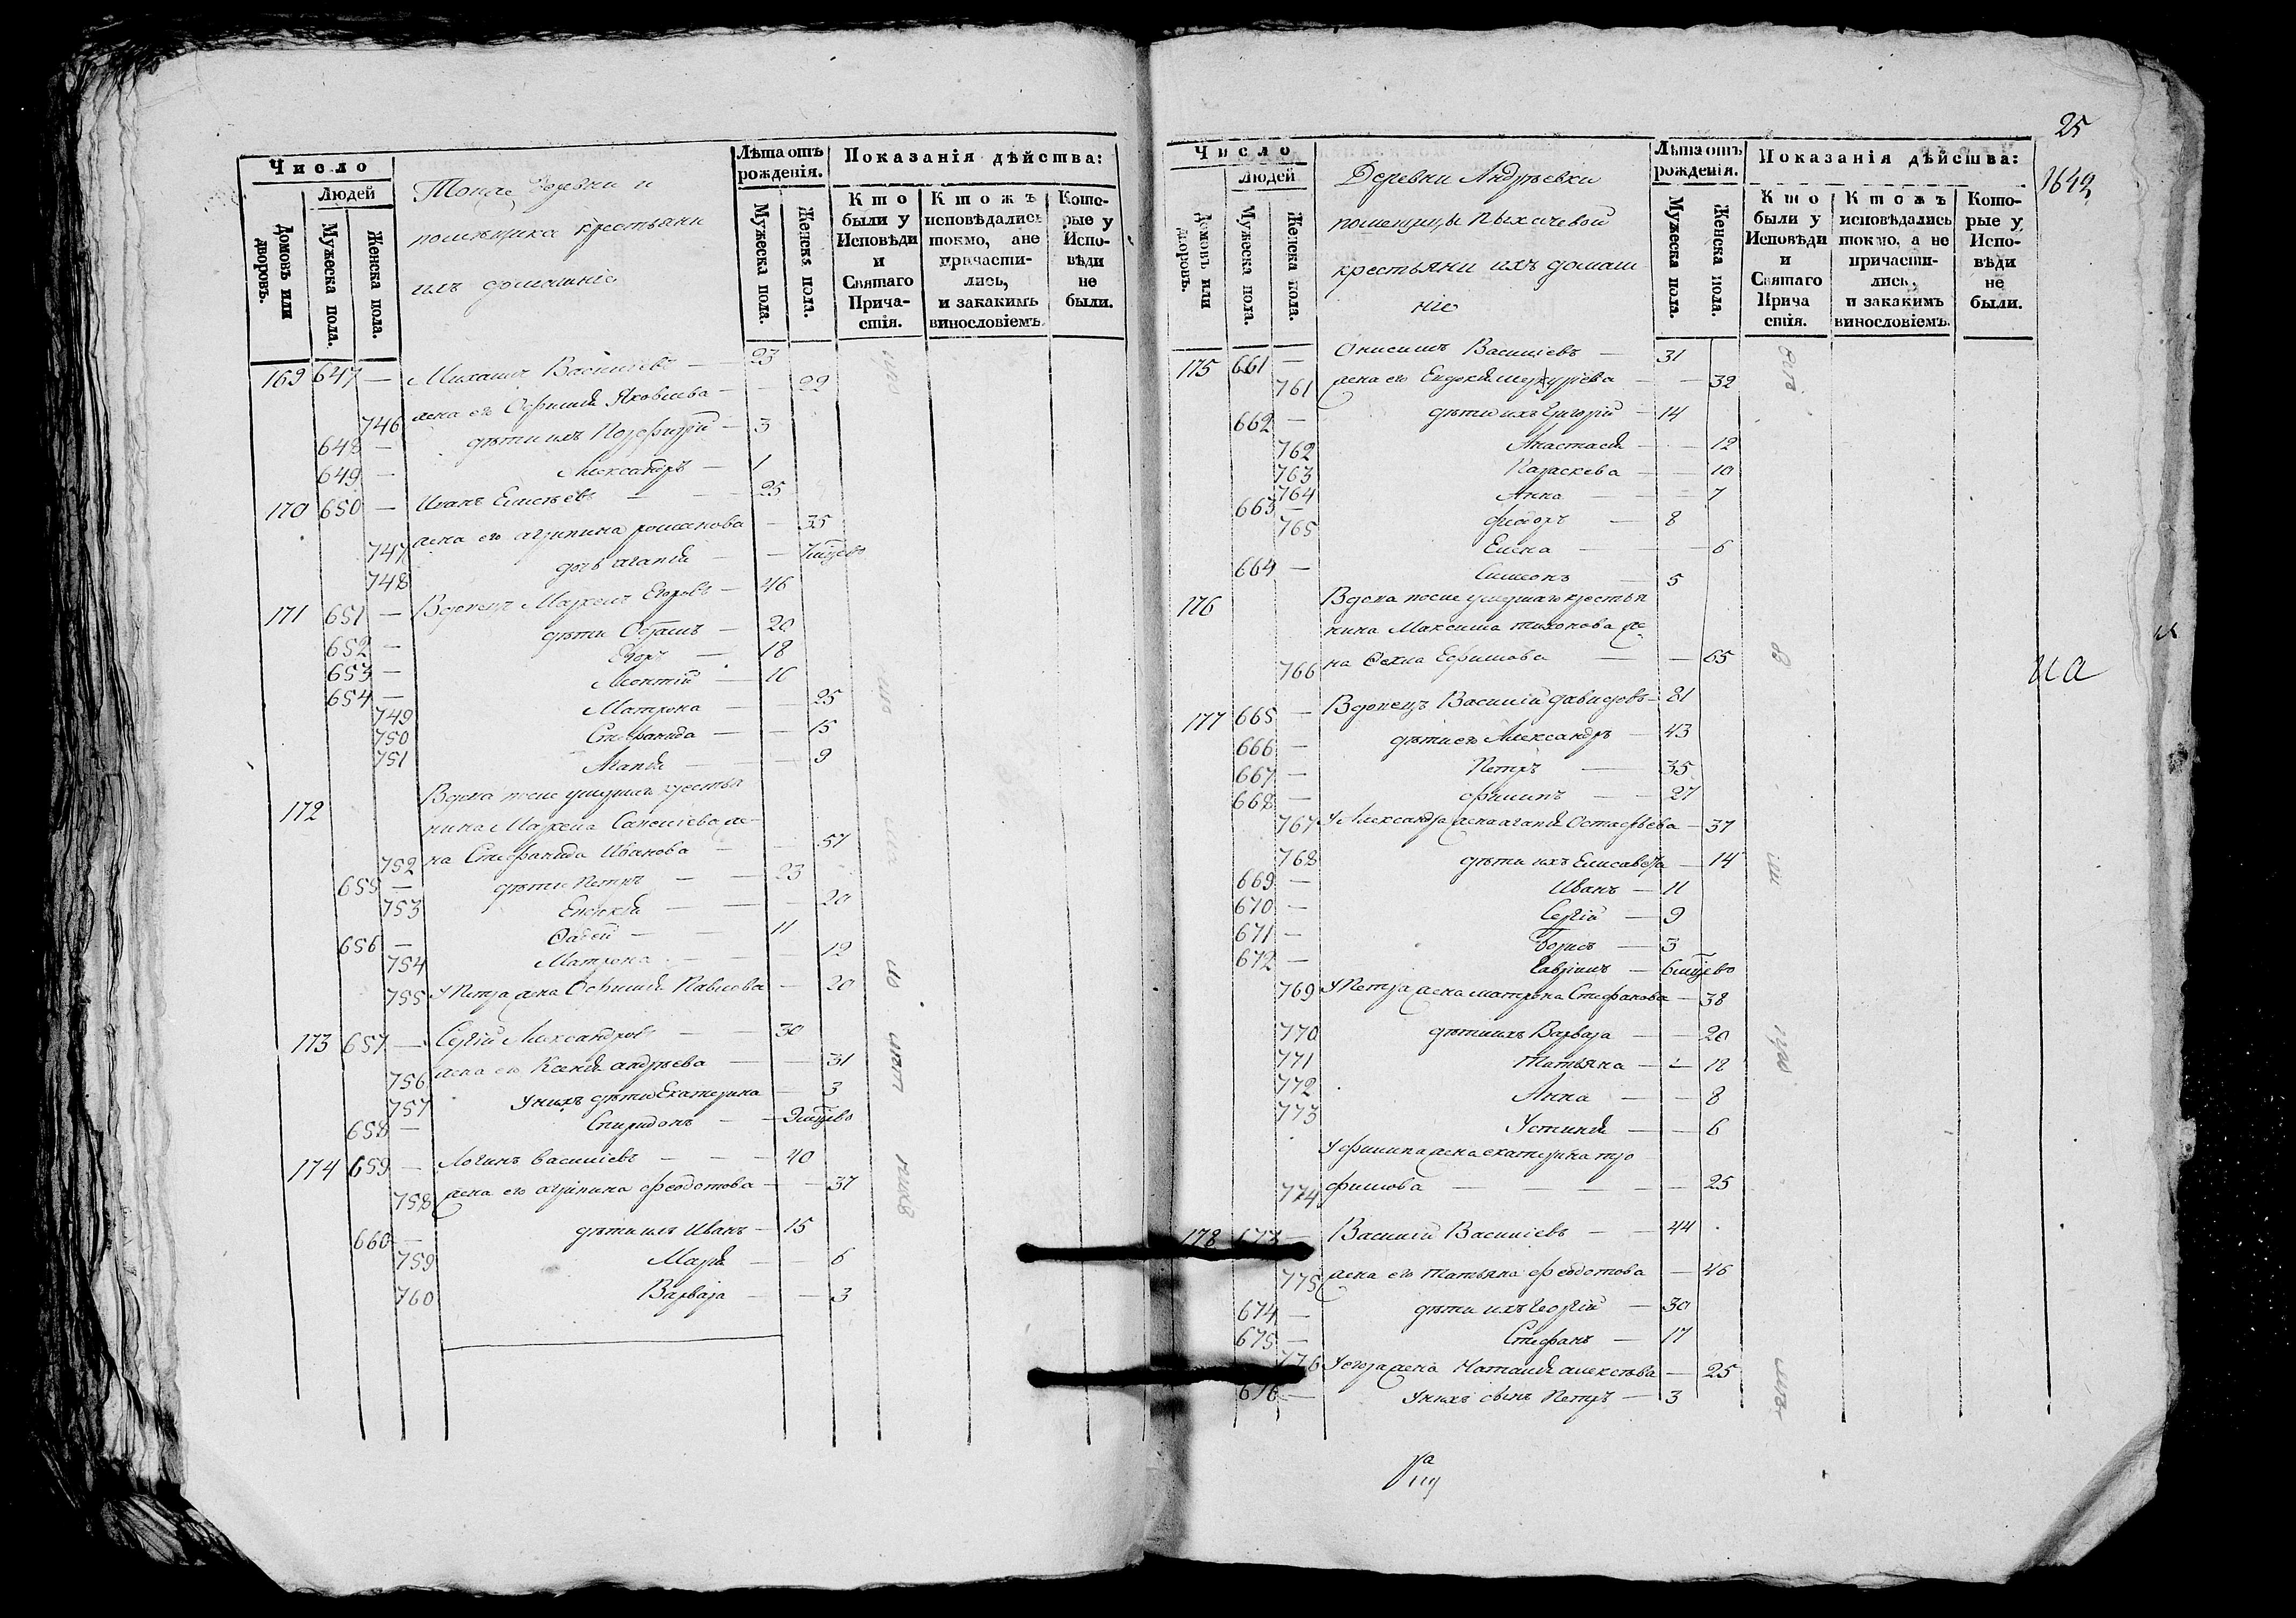 Число
Людей
Домовъ или дворовъ.
Мужеска пола.
Женска пола.
Тоҥже деревни и
помѣщика крестьяни
ихъ домашніе
Лѣта отъ рожденія.
Мужеска пола.
Женскa пола.
Показанія дѣйства:
Кто были у Исповѣди и Святаго Причастія.
Ктожъ исповѣдались токмо, а не причастились, и закакимъ винословіемъ.
Которые у Исповѣди не были.
169 647 — Михаилъ Васильевъ — 23
746 жена его Офимия Яковлева — 22
648 — дѣти ихъ Порфирій — 3
649 — Александръ — 1
170 650 — Иванъ Елисѣевъ — 25
747 жена его агрипина романова — 35
748 дочь агапия — —
171 651 — Вдовецъ Маркелъ Егоровъ — 46
652 — дѣти — 20
653 — Егоръ — 18
654 — Леонтій — 16
749 Матрона — 25
750 Стефанида — 15
751 Агапия — 9
172 Вдова после умершаго крестья
нина Маркела Савельева же
752 на Стефанида Иванова — 57
655 — дѣти Петръ — 23
753 Евдокия — 20
656 — Фадей — 11
754 Матрона — 12
755 У Петра жена Офимия Павлова — 20
173 657 — Сергій Александровъ — 30
756 жена его Ксения андреева — 31
757 У нихъ дѣти Екатерина — 3
658 — Спиридонъ —
174 659 — Логинъ василіевъ — 40
758 жена его агрипина феодотова — 37
660 — дѣти ихъ Иванъ — 15
759 Мария — 6
760 Варвара — 3
25
Число
Людей
Домовъ или дворовъ.
Мужеска пола.
Женска пола.
Деревни Андреевки
помещицы Пыхачевой
крестьяни ихъ домаш
ніе
Лѣта отъ рожденія.
Мужеска пола.
Женска пола.
Показанія дѣйства:
Кто были у Исповѣди и Святаго Причастія.
Ктожъ исповѣдались токмо, а не причастились, и закакимъ винословіемъ.
Которые у Исповѣди не были.
175 661 — Онисимъ Василіевъ — 31
761 жена его Евдокия меркуріева — 32
662 — дѣти ихъ Григорій — 14
762 Анастасия — 12
763 Параскева — 10
764 Анна — 7
663 — феодоръ — 8
765 Елена — 6
664 — Симеонъ — 5
176 Вдова после умершаго крестья
нина Максима тихонова же
766 на Фекла Ефимова — 65
177 665 — Вдовецъ Василій давидовъ — 81
666 — дѣти его Александръ — 43
667 — Петръ — 35
668 — филипъ — 27
767 У Александра жена агапия Остафьева — 37
768 дѣти ихъ Елисавета — 14
669 — Иванъ — 11
670 — Сергій — 9
671 — Борисъ — 3
672 — Гавріилъ —
769 У Петра жена матрона Стефанова — 38
770 дѣти ихъ Варвара — 20
771 Татьяна — 18
772 Анна — 8
773 Устиния — 6
У филипа жена екатерина тро
774 фимова — 25
178 673 — Василій Василіевъ — 44
775 жена его татьяна феодотова — 46
674 — дѣти ихъ Георгій — 30
675 — Стефанъ — 17
776 У егора жена Наталия алексѣева — 25
676 — У нихъ сынъ Петръ — 3